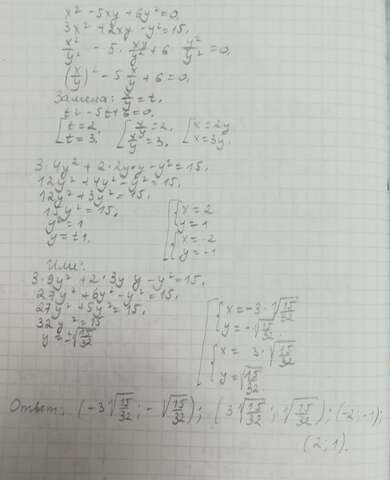 x² - 5xy + 6y² = 0,
3x² + 2xy - y² = 15,
x²/y² - 5 · xy/y² + 6 y²/y² = 0,
(x/y)² - 5 x/y + 6 = 0,
Замена: x/y = t,
t² - 5t + 6 = 0,
[t = 2, [x/y = 2, [x = 2y
[t = 3, [x/y = 3, [x = 3y,
3 · 4y² + 2 · 2y · y - y² = 15,
12y² + 4y² - y² = 15,
12y² + 3y² = 15,
15y² = 15,
y² = 1
y = ±1,
{x = 2
{y = 1
{x = -2
{y = -1
Или:
3 · 9y² + 2 · 3y · y - y² = 15,
27y² + 6y² - y² = 15,
27y² + 5y² = 15,
32y² = 15
y = ±√15/32
{x = -3 · √15/32
{y = -√15/32,
{x = 3 · √15/32
{y = √15/32
Ответ: (-3√15/32; -√15/32); (3√15/32; √15/32); (-2; -1);
(2; 1).